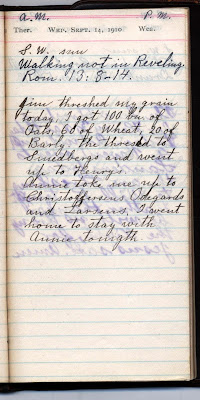 A.M. P.M.
Ther. WED. SEPT. 14, 1910 Wea.
S. W. sun
Walking not in Reveling.
Rom. 13: 8-14.
Jim threshed my grain
today. I got 100 bu of
Oats, 60 of Wheat, 20 of
Barly. the thresed to
Smedbergs and went
up to Henrys.
Annie take me up to
Christoffersens Odegards
and Larsens, I went
home to stay with
Annie tonigth